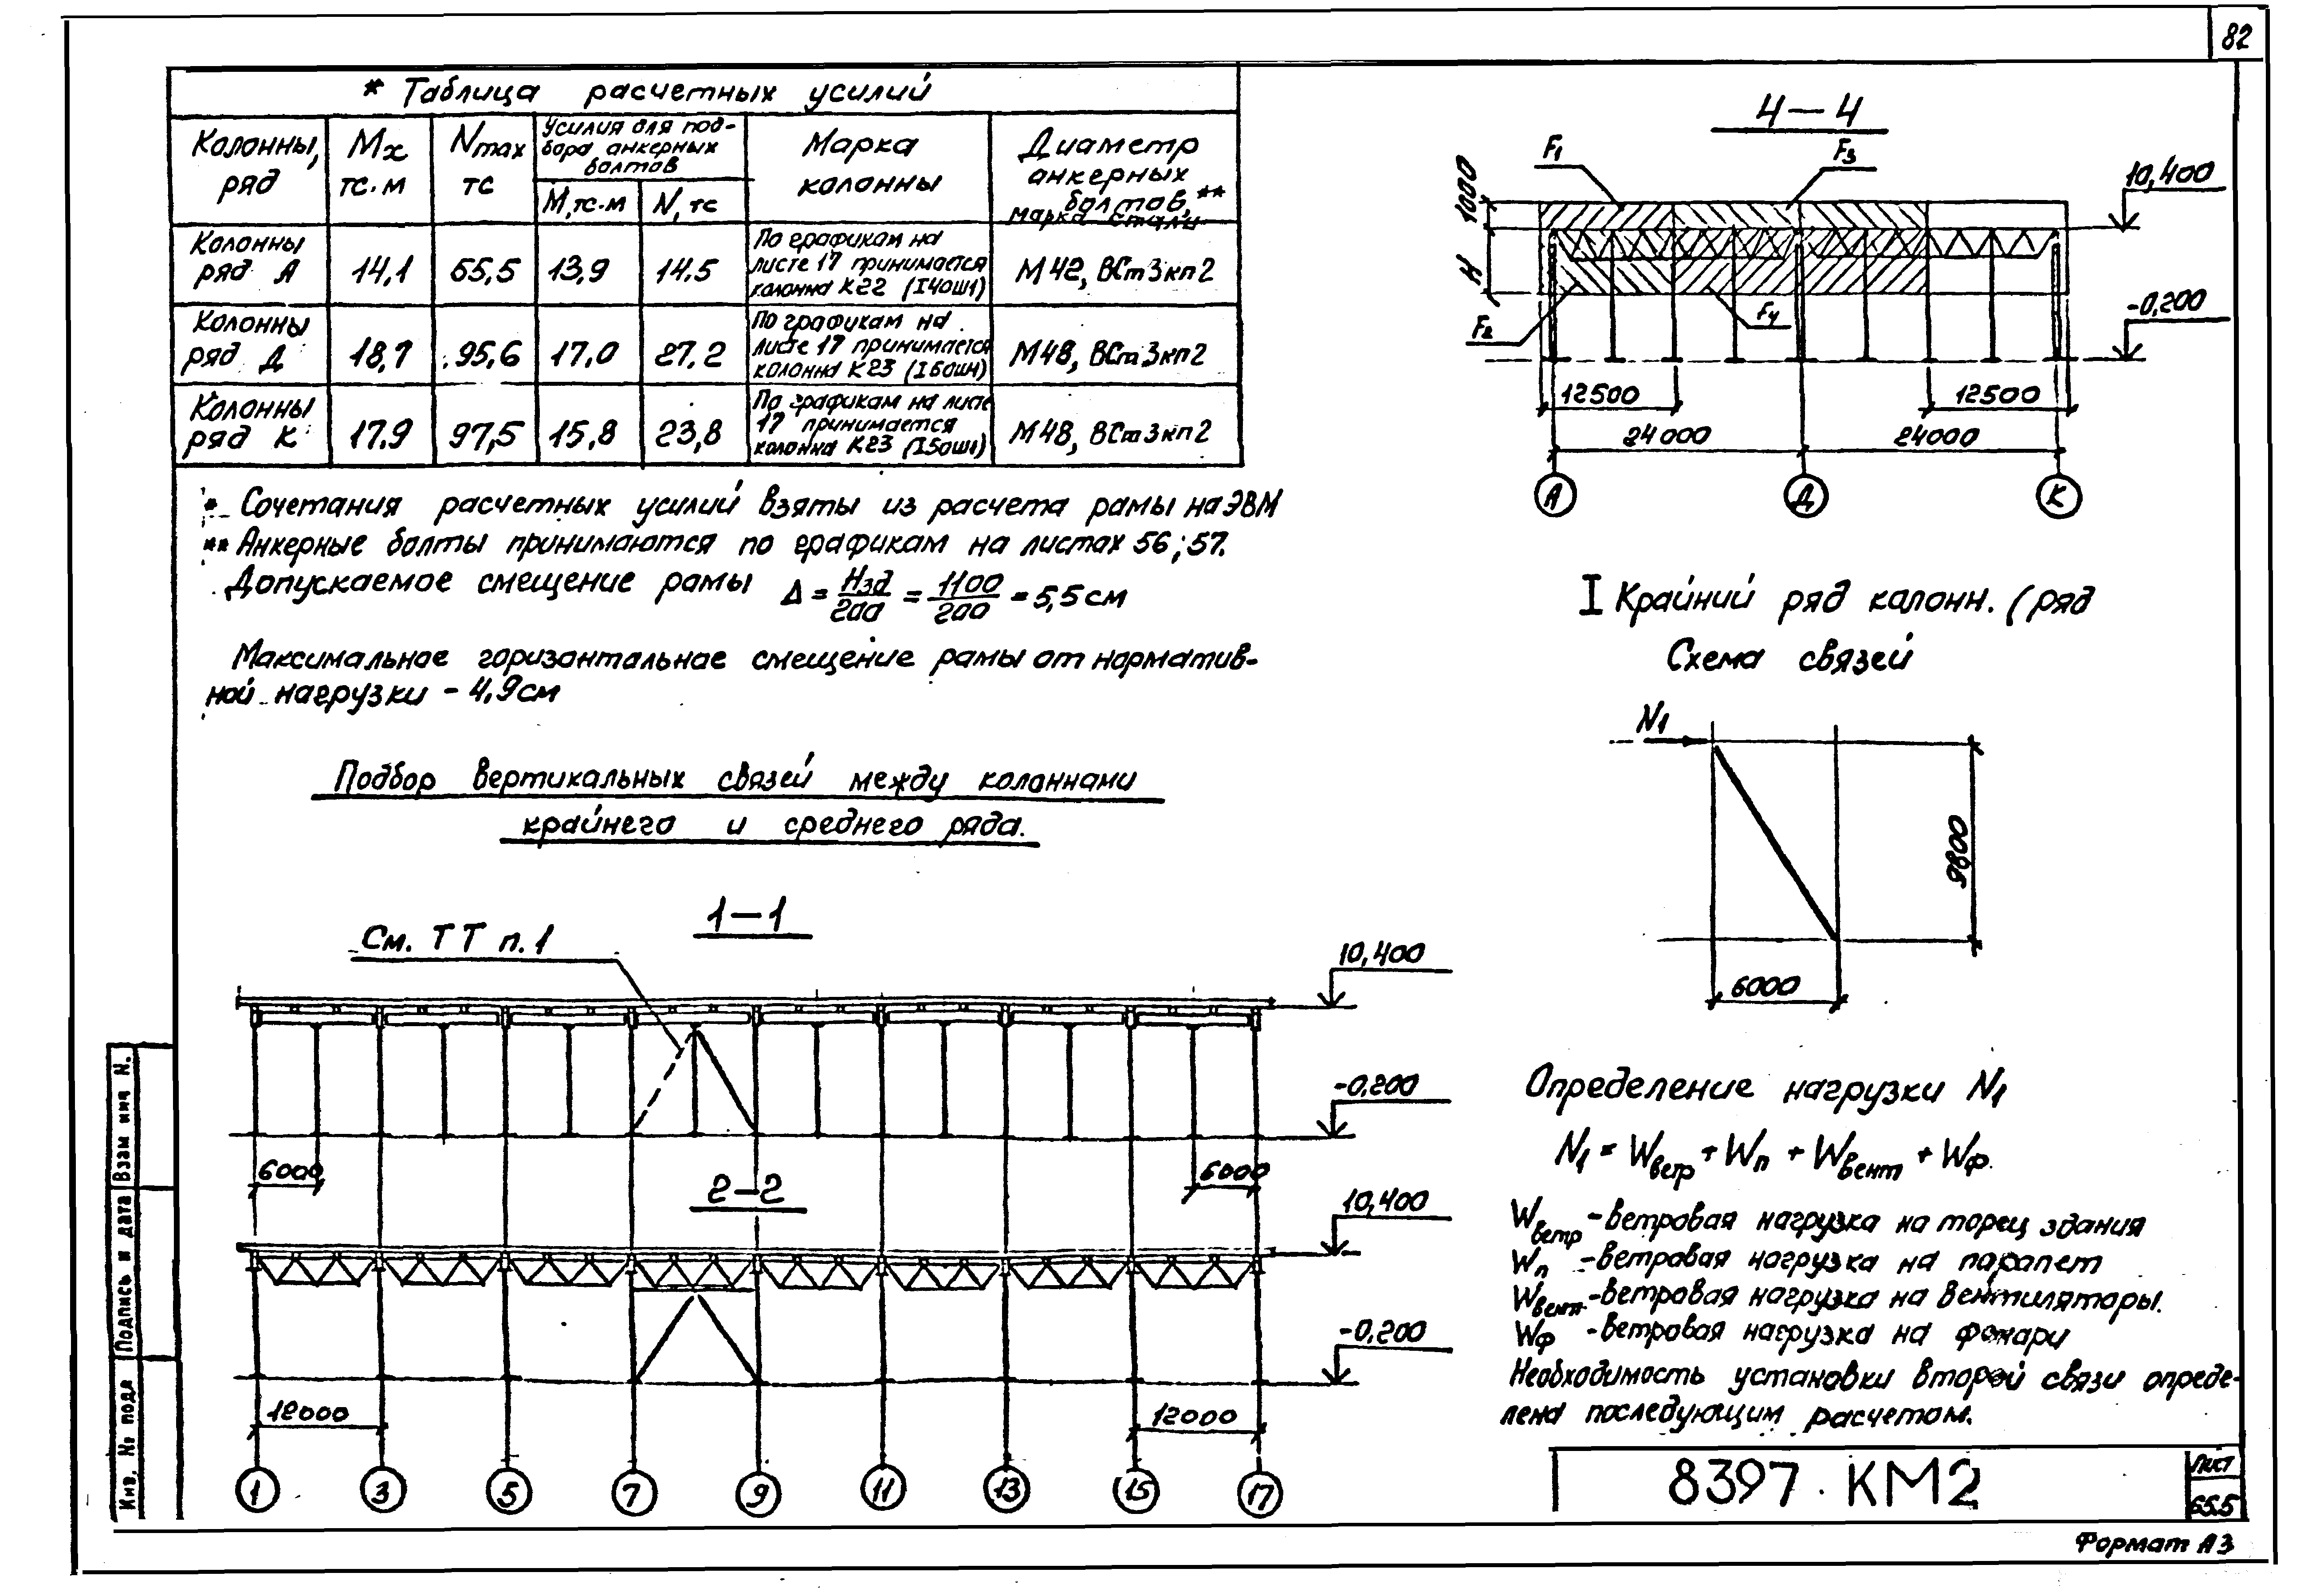 82
* Таблица расчетных усилий
Колонны, ряд
Mx тс·м
Nmax тс
Усилия для под-
бора анкерных
болтов
M, тс·м
N, тс
Марка колонны
Диаметр анкерных болтов, **
марка стали
Колонны ряд А
14,1
65,5
13,9
14.5
По графикам на
листе 17 принимается
колонна К22 (I40Ш1)
М42, ВСт3кп2
Колонны ряд Д
18,7
95,6
17,0
27,2
По графикам на
листе 17 принимается
колонна К23
М48, ВСт3кп2
Колонны ряд К
17,9
97,5
15,8
23,8
По графикам на листе
17 принимается
колонна К23 (I50Ш1)
М48, ВСт3кп2
* Сочетания расчетных усилий взяты из расчета рамы на ЭВМ
** Анкерные болты принимаются по графикам на листах 56; 57.
Допускаемое смещение рамы Δ = Hзд/200 = 1100/200 = 5,5 см
Максимальное горизонтальное смещение рамы от норматив-
ной нагрузки - 4,9 см
Подбор вертикальных связей между колоннами
крайнего и среднего ряда.
1-1
См. ТТ п. 1
10,400
-0,200
6000
6000
2-2
10,400
-0,200
12000
12000
1 3 5 7 9 11 13 15 17
4-4
F1
F3
1000
H
10,400
F2
F4
-0,200
12500
12500
24000
24000
А Д К
I Крайний ряд колонн. (ряд
Схема связей
N1
9800
6000
Определение нагрузки N1
N1 = Wветр + Wп + Wвент + Wф.
Wветр - ветровая нагрузка на торец здания
Wп - ветровая нагрузка на парапет
Wвент - ветровая нагрузка на вентиляторы.
Wф - ветровая нагрузка на фонари
Необходимость установки второй связи опреде-
лена последующим расчетом.
8397 КМ2
Лист
65.5
Формат А3
Инв. № подл
Подпись и дата
Взам инв N.